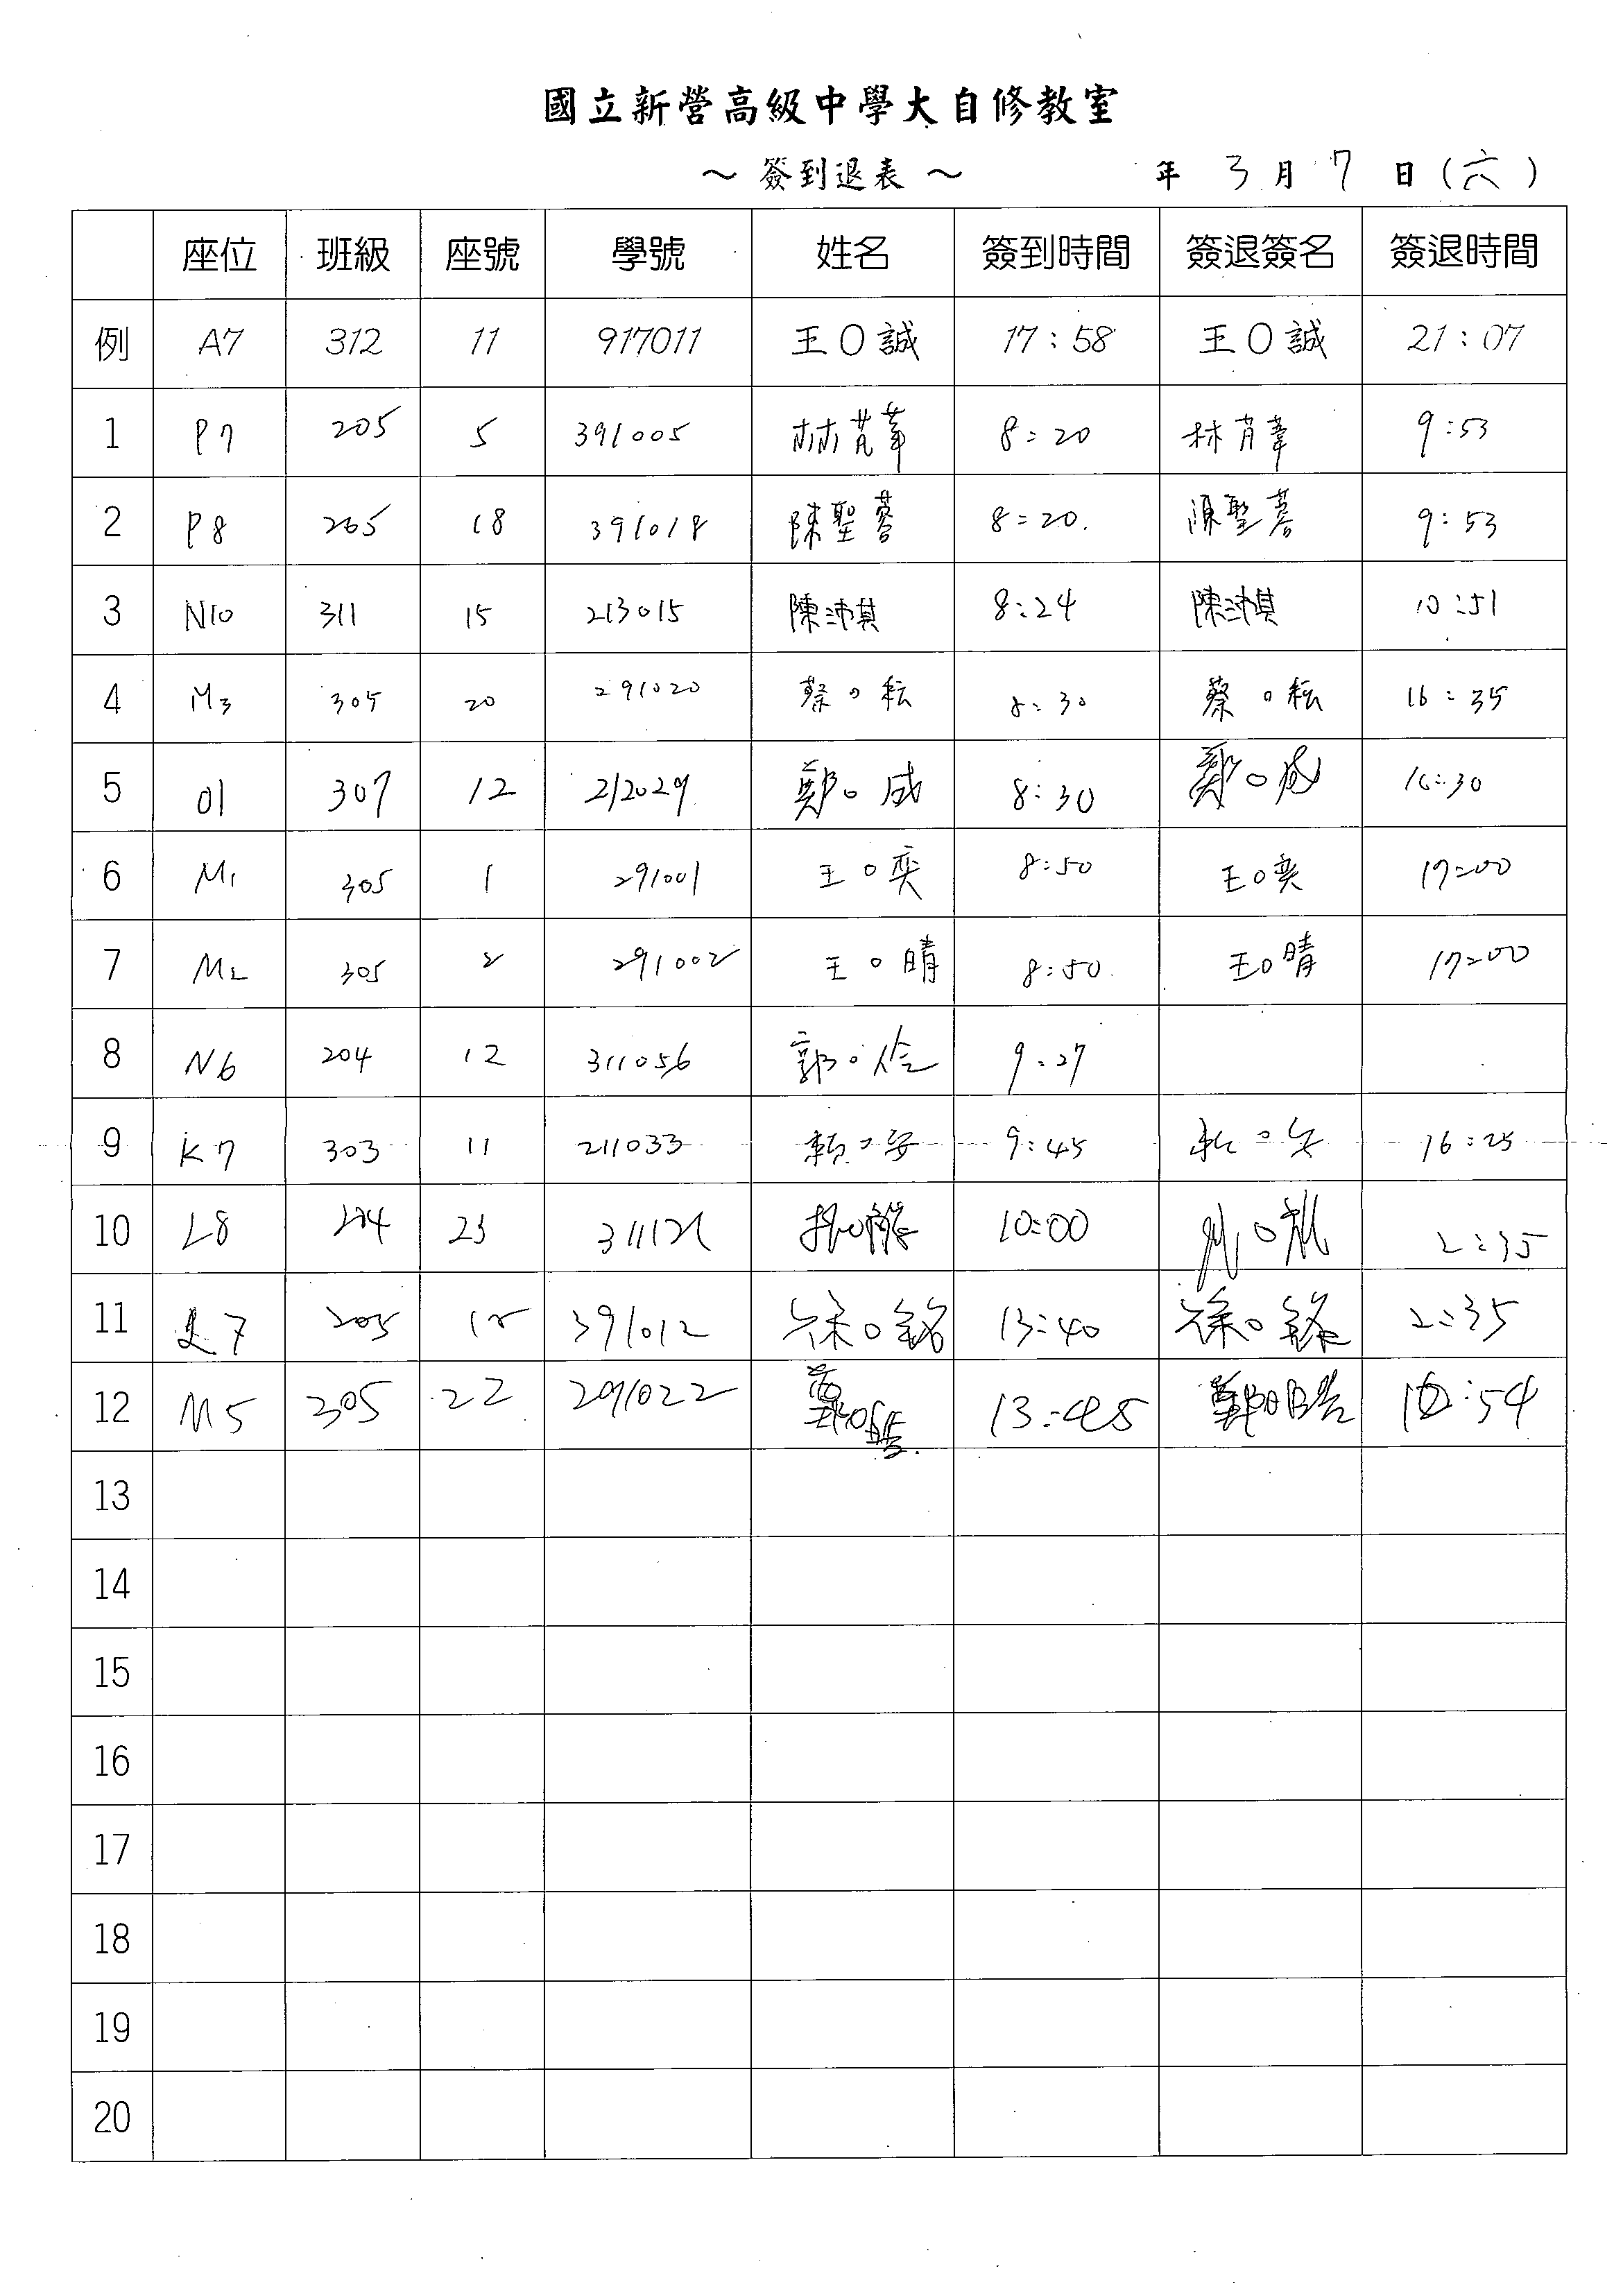 國立新營高級中學大自修教室
～ 簽到退表 ～ 年 3 月 7 日 (六)
座位 班級 座號 學號 姓名 簽到時間 簽退簽名 簽退時間
例 A7 312 11 917011 王O誠 17:58 王O誠 21:07
1 P7 205 5 391005 林芃葦 8:20 林芃葦 9:53
2 P8 205 18 391018 陳聖蓉 8:20 陳聖蓉 9:53
3 N10 311 15 213015 陳沛淇 8:24 陳沛淇 10:51
4 M3 305 20 291020 蔡O耘 8:30 蔡O耘 16:35
5 O1 307 12 212029 鄭O成 8:30 鄭O成 16:30
6 M1 305 1 291001 王O奕 8:50 王O奕 17:00
7 M2 305 2 291002 王O晴 8:50 王O晴 17:00
8 N6 204 12 311056 郭O伶 9:27
9 K7 303 11 211033 賴O安 9:45 賴O安 16:25
10 L8 204 23 10:00 2:35
11 7 205 12 391012 徐O銘 13:40 徐O銘 2:35
12 M5 305 22 291022 13:45 :54
13
14
15
16
17
18
19
20